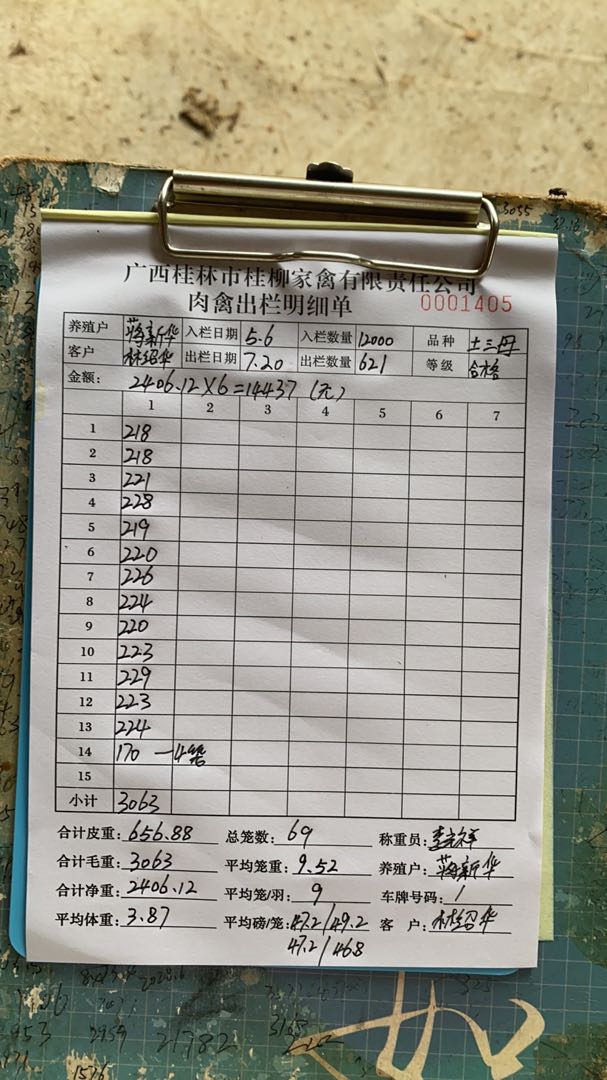 广西桂林市桂柳家禽有限责任公司
肉禽出栏明细单 0001405
养殖户 蒋新华 入栏日期 5.6 入栏数量 12000 品种 土三母
客户 林绍华 出栏日期 7.20 出栏数量 621 等级 合格
金额: 2406.12×6=14437(元)
1 2 3 4 5 6 7
1 218
2 218
3 221
4 228
5 219
6 220
7 226
8 224
9 220
10 223
11 229
12 223
13 224
14 170 —4笼
15
小计 3063
合计皮重: 656.88 总笼数: 69 称重员:
合计毛重: 3063 平均笼重: 9.52 养殖户: 蒋新华
合计净重: 2406.12 平均笼/羽: 9 车牌号码: /
平均体重: 3.87 平均磅/笼: 47.2/49.2 客户: 林绍华
47.2/46.8
3055
953 2959 21782
1576